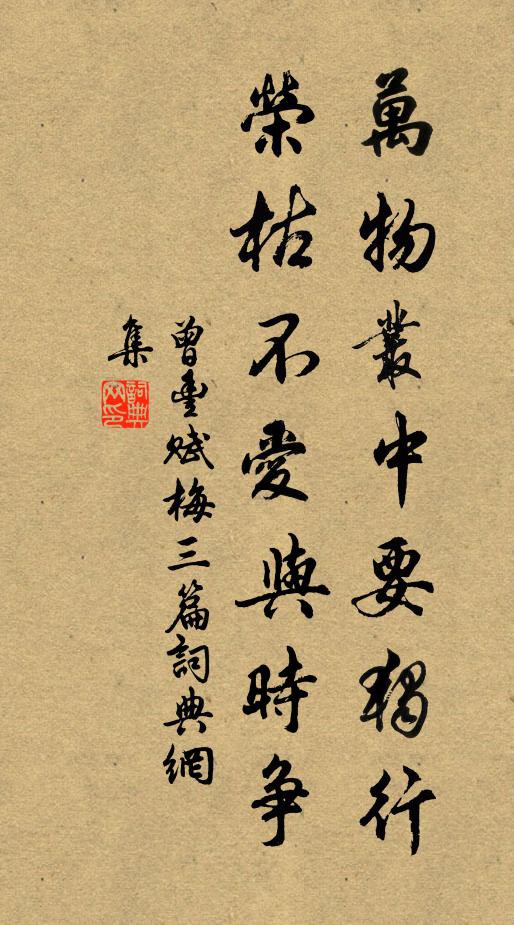 萬物叢中要獨行
榮枯不愛與時爭
曾豐賦梅三篇詞典網
集
詞典網印